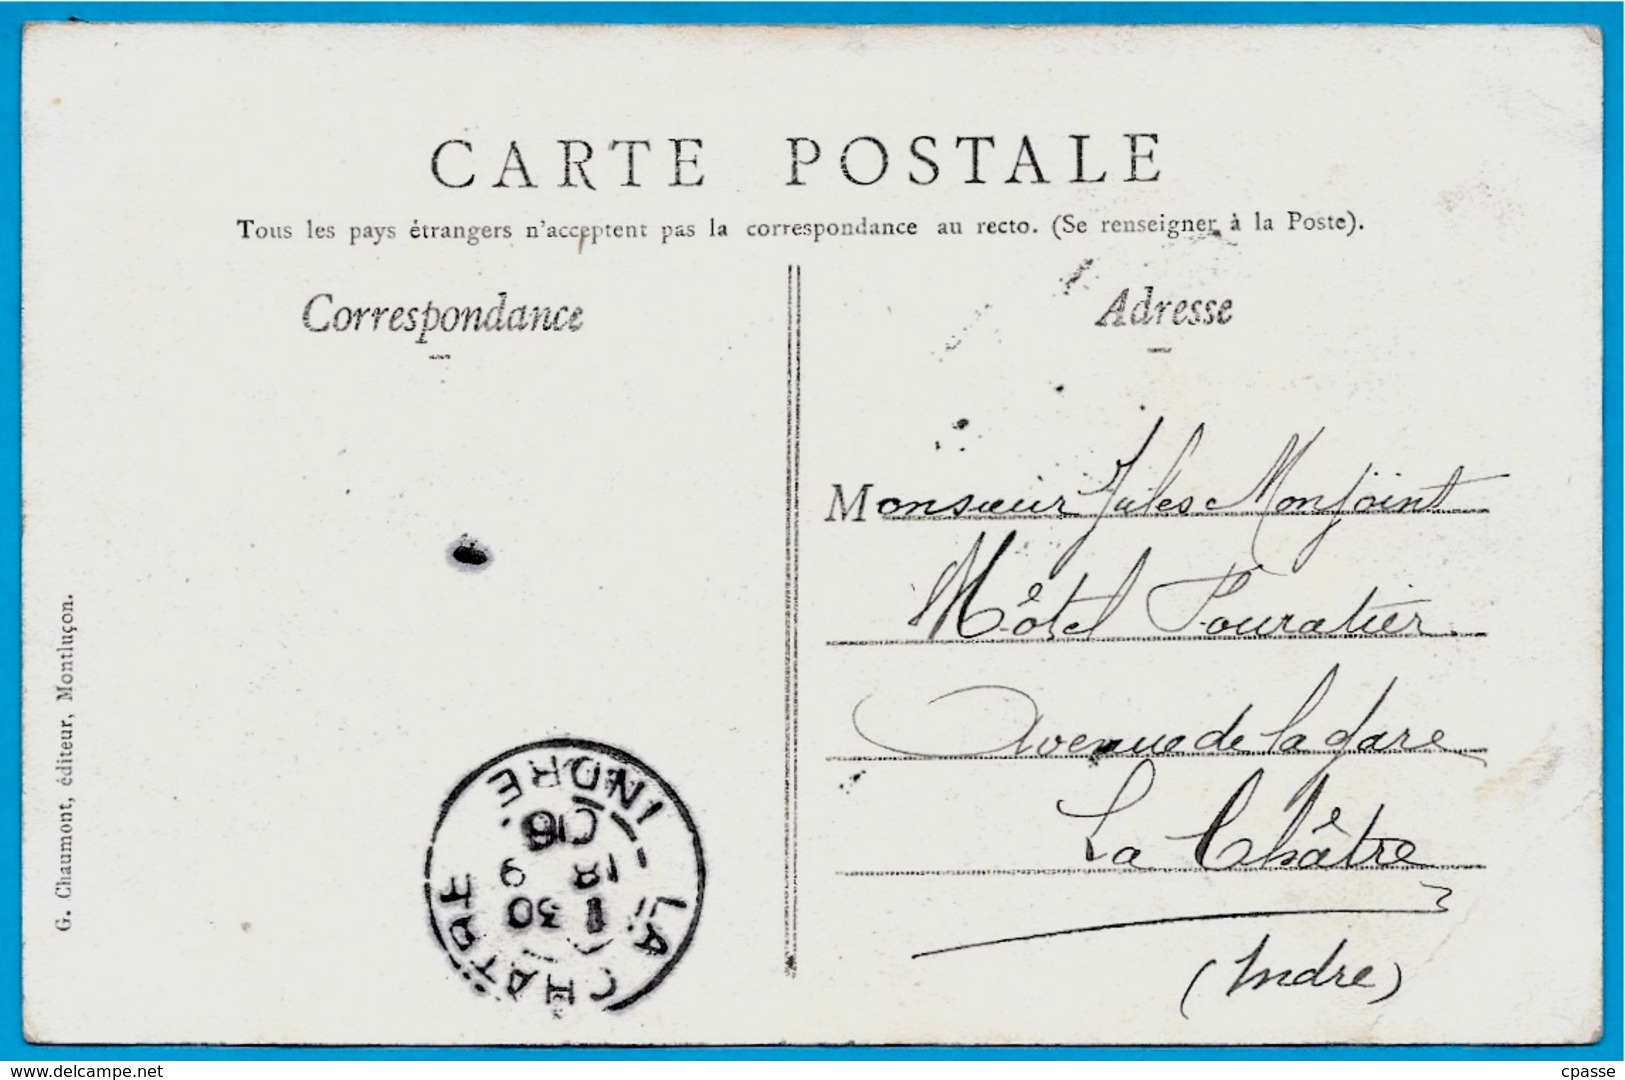 CARTE POSTALE
Tous les pays étrangers n'acceptent pas la correspondance au recto. (Se renseigner à la Poste).
Correspondance
Adresse
Monsieur Jules Monjoint
Hôtel Pouratier
Avenue de la gare
La Châtre
(Indre)
G. Chaumont, éditeur, Montluçon.
LA CHATRE
INDRE
1 30
18 9
06
www.delcampe.net
cpasse